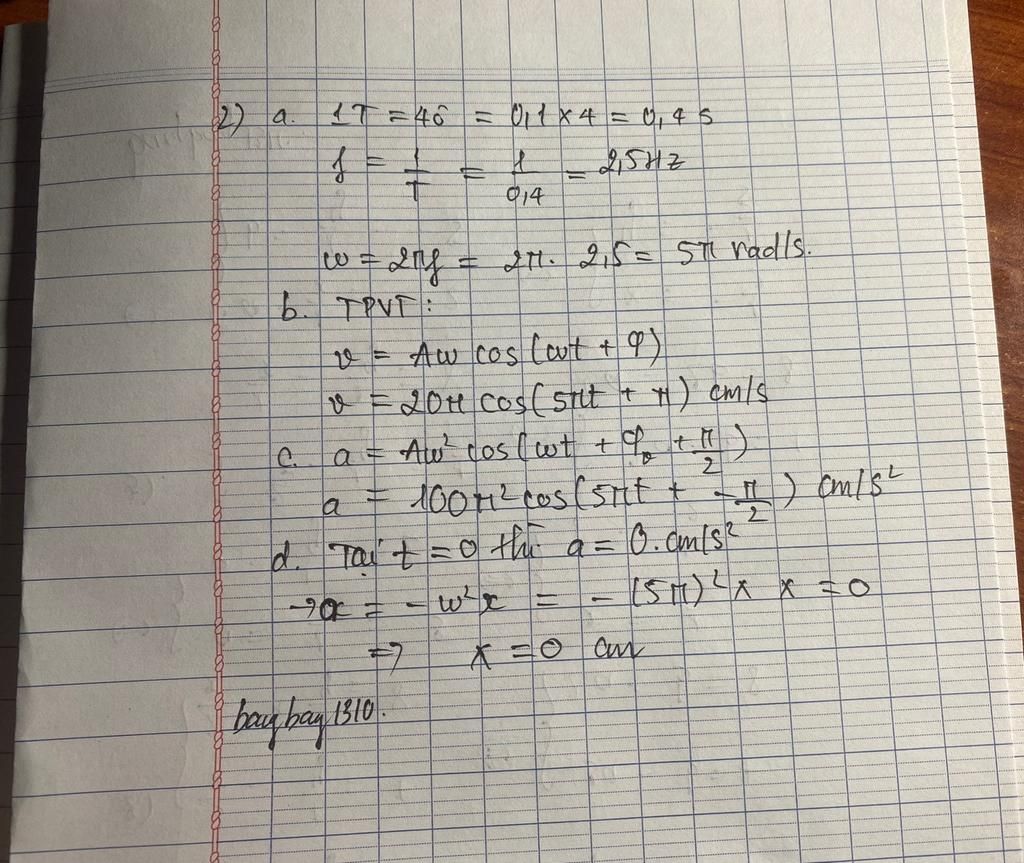 2) a. 1T = 4ô = 0,1 × 4 = 0,4 s
f = 1/T = 1/0,4 = 2,5Hz
ω = 2πf = 2π. 2,5 = 5π rad/s.
b. TPVT:
v = Aω cos(ωt + φ)
v = 20π cos(5πt + π) cm/s
c. a = Aω² cos(ωt + φ_v + π/2)
a = 100π² cos(5πt + -π/2) cm/s²
d. Tại t = 0 thì a = 0. cm/s²
→ a = - ω²x = - (5π)² × x = 0
⇒ x = 0 cm
baybay1310.